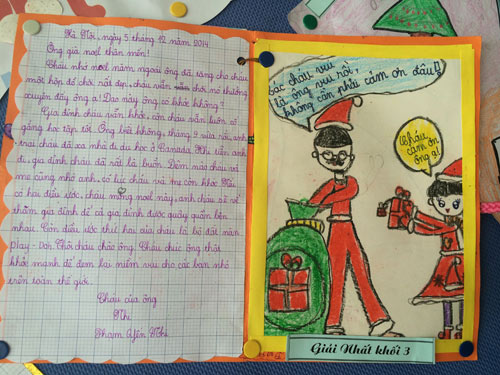 Hà Nội, ngày 5 tháng 12 năm 2014
Ông già noel thân mến!
Cháu nhớ noel năm ngoái ông đã tặng cho cháu
một hộp đồ chơi rất đẹp, cháu vẫn chơi nó thường
xuyên đấy ông ạ! Dạo này ông có khỏe không?
Gia đình cháu vẫn khỏe, còn cháu vẫn luôn cố
gắng học tập tốt. Ông biết không, tháng 9 vừa rồi, anh
trai cháu đã xa nhà đi du học ở Canada. Khi tiễn anh
đi, gia đình cháu đã rất là buồn. Đêm nào cháu và
mẹ cũng nhớ anh, có lúc cháu và mẹ còn khóc. Nếu
có hai điều ước, cháu mong noel này, anh cháu sẽ về
thăm gia đình để cả gia đình được quây quần bên
nhau. Còn điều ước thứ hai của cháu là bộ đất nặn
Play - Doh. Thôi cháu chào ông! Cháu chúc ông thật
khỏe mạnh để đem lại niềm vui cho các bạn nhỏ
trên toàn thế giới.
Cháu của ông
Nhi
Phạm Yến Nhi
Các cháu vui
là ông vui rồi,
không cần phải cảm ơn đâu!
Cháu
cảm ơn
ông ạ!
Giải Nhất khối 3